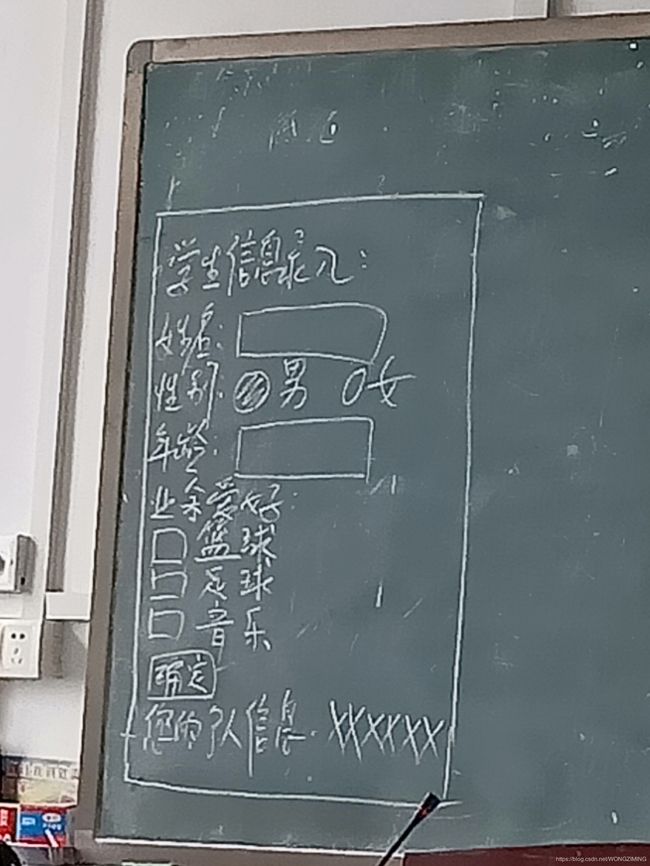 学生信息录入:
姓名:
性别: 男 女
年龄:
业余爱好:
篮球
足球
音乐
确定
您的个人信息: XXXXXX
https://blog.csdn.net/WONGZIMING